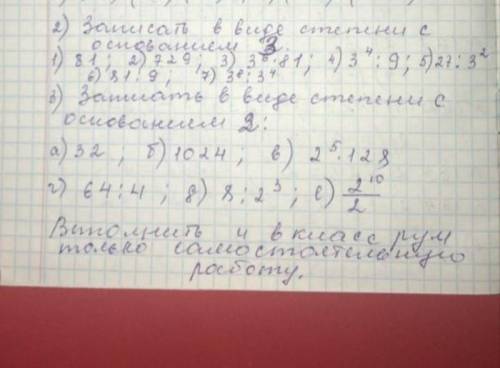 2) Записать в виде степени с
основанием 3.
1) 81; 2) 729; 3) 3⁶:81; 4) 3⁴:9; 5) 27:3²
6) 81:9; 7) 3⁸:3⁴
3) Записать в виде степени с
основанием 2:
а) 32; б) 1024; в) 2⁵·128
г) 64:4; д) 8:2³; е) 2¹⁰/2
Выполнить и в класс рум
только самостоятельную
работу.